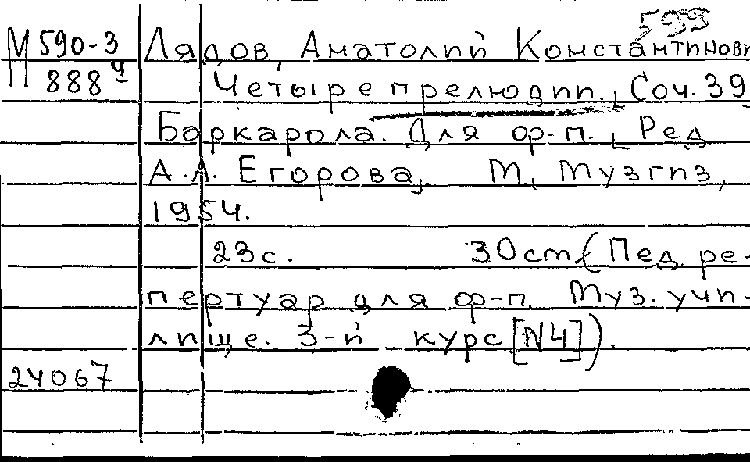 599
М 590-3 Лядов, Анатолий Константинови
888 ч Четыре прелюдии. Соч. 39
Боркарола. Для ф-п. Ред
А.А. Егорова, М, Музгиз,
1954.
23с. 30cm (Пед. ре-
пертуар для ф-п. Муз. учи-
лище. 3-й курс [N4]).
24067